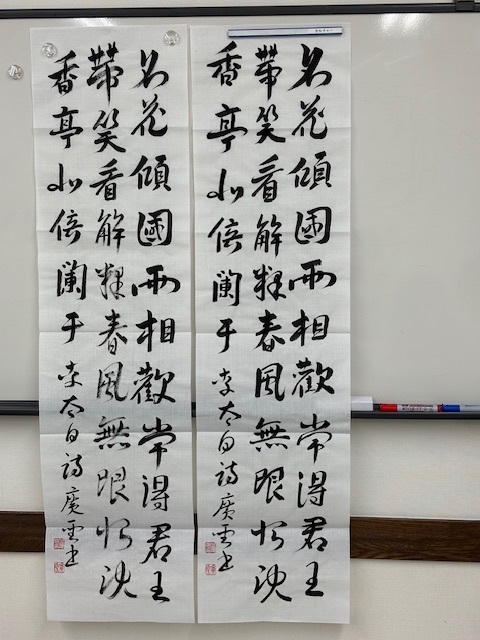 名花傾國兩相歡常得君王
帶笑看解釋春風無限恨沈
香亭北倚闌干 李太白詩 廣雲書
名花傾國兩相歡常得君王
帶笑看解釋春風無限恨沈
香亭北倚闌干 李太白詩 廣雲書